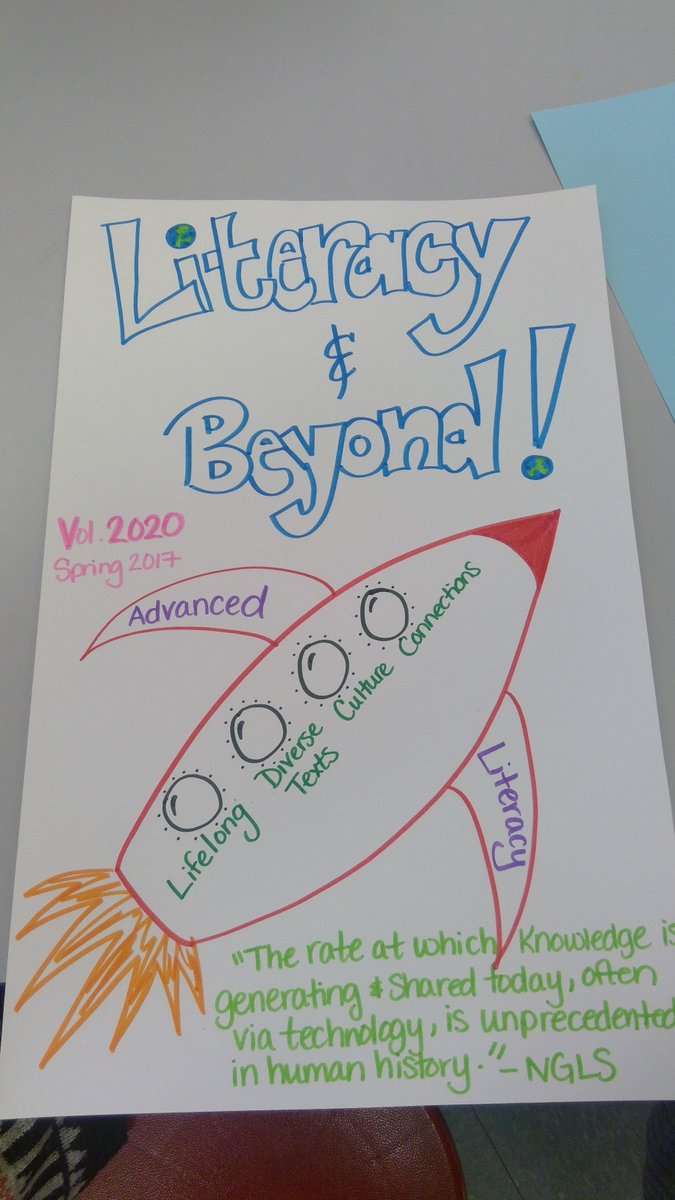 Literacy
&
Beyond!
Vol. 2020
Spring 2017
Advanced
Lifelong
Diverse
Texts
Culture
Connections
Literacy
"The rate at which Knowledge is
generating & Shared today, often
via technology, is unprecedented
in human history." - NGLS